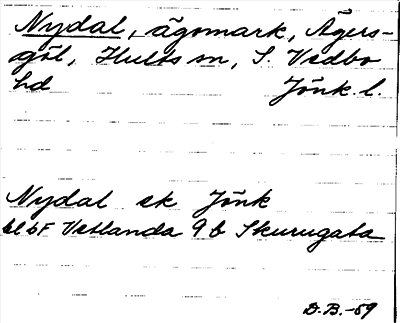 Nydal, ägomark, Ägers-
göl, Hults sn, S. Vedbo
hd Jönk. l.
Nydal ek Jönk
bl 6F Vetlanda 9 b Skurugata
D.B.-59